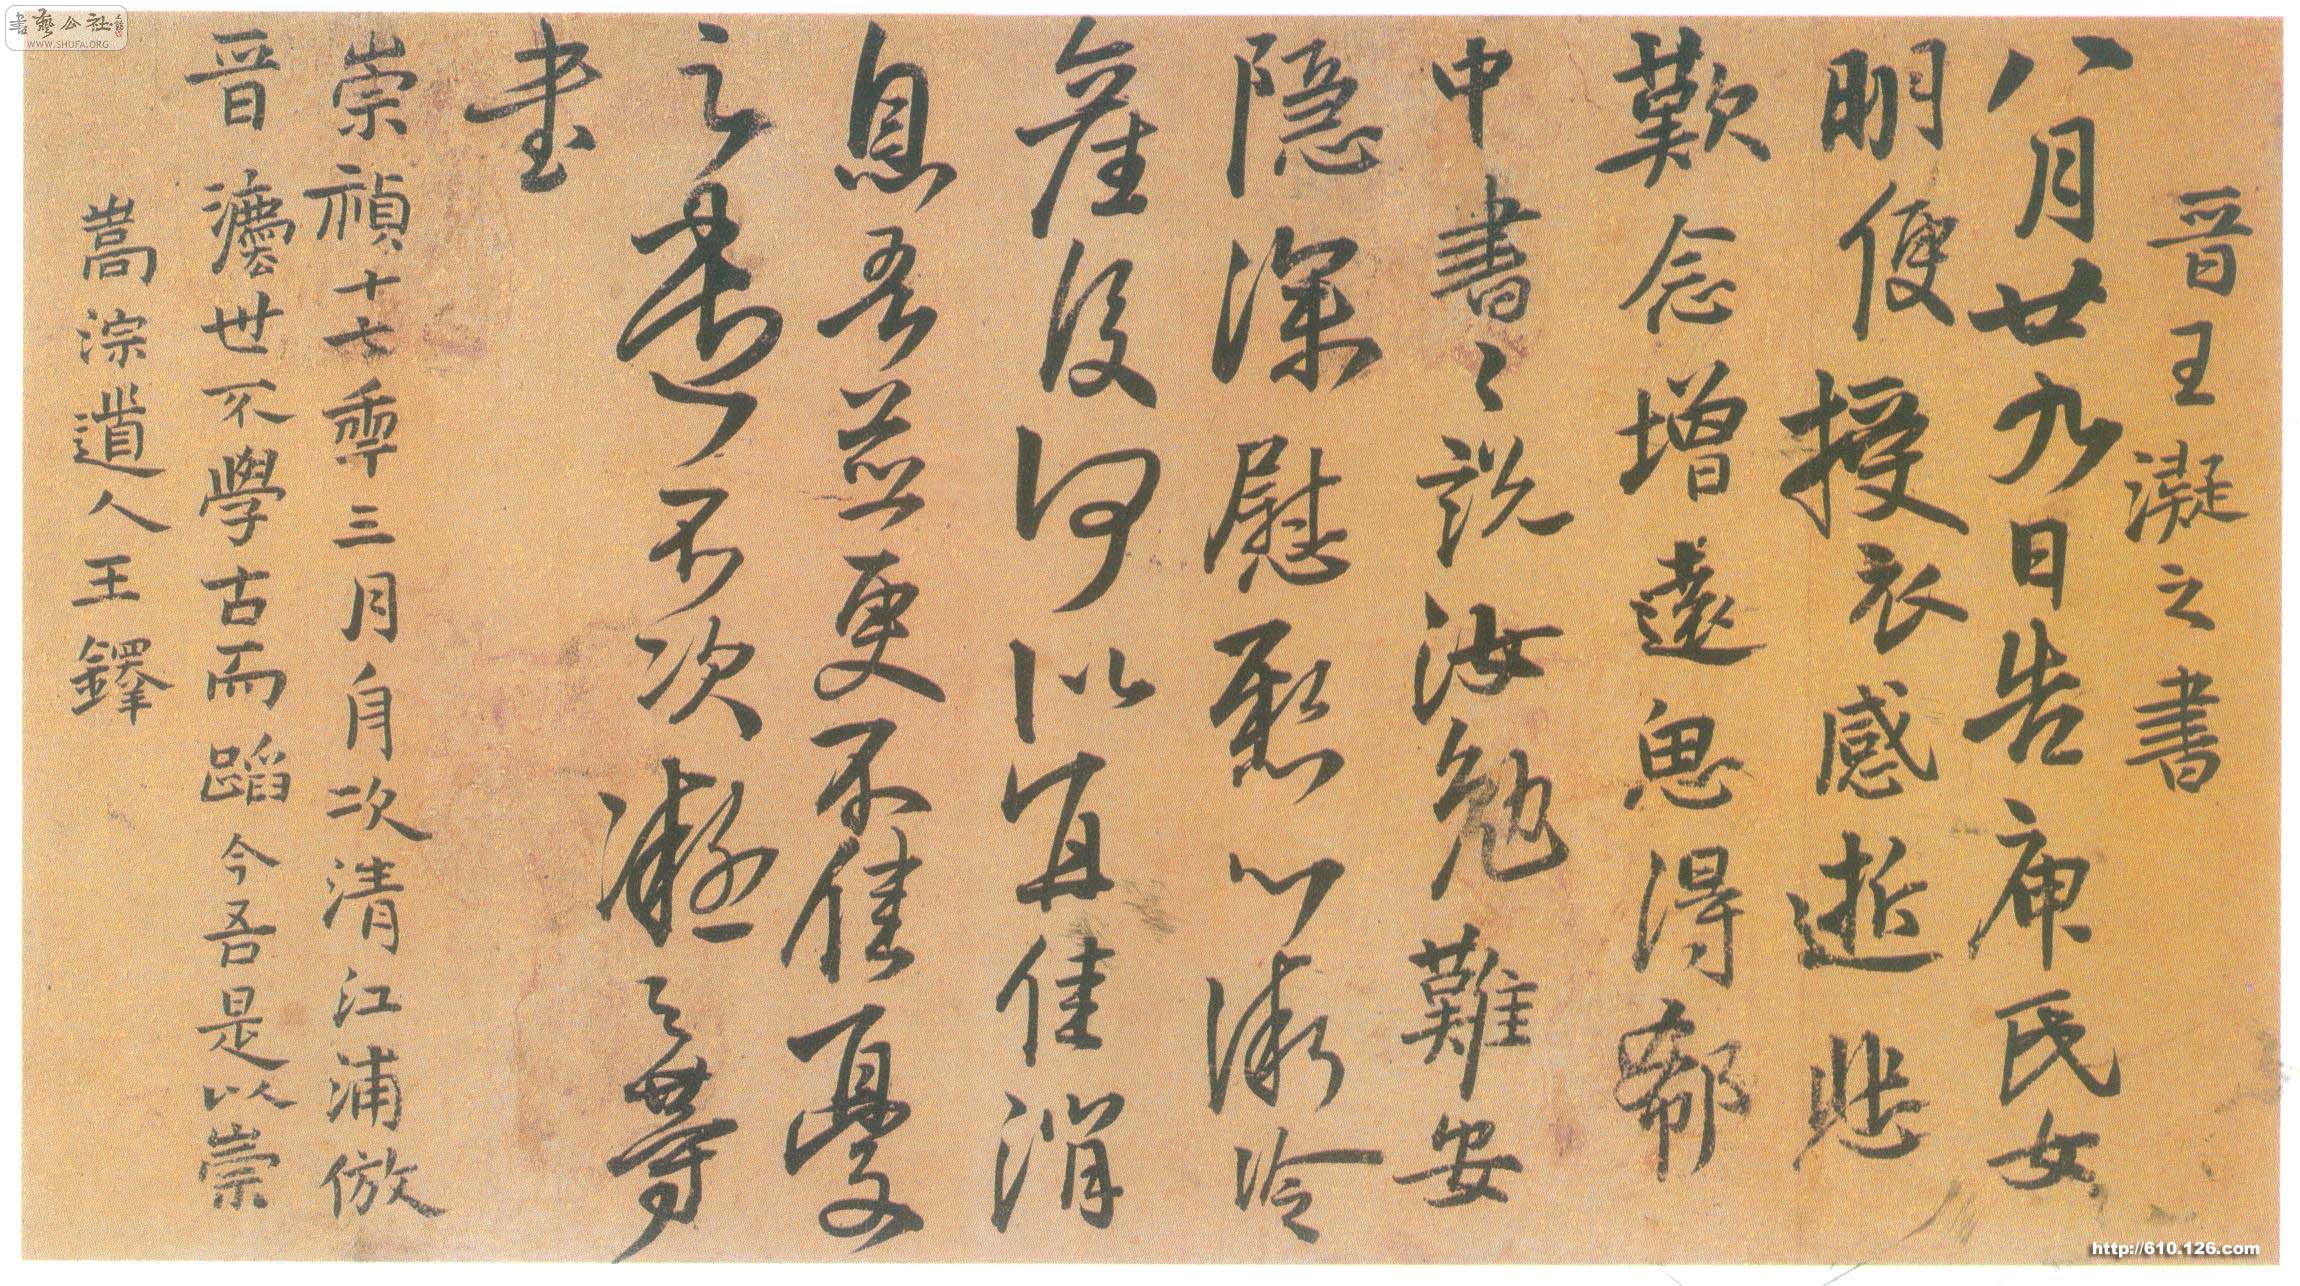 晉王凝之書
八月廿九日告庚氏女
明便授衣感逝悲
歎念增遠思得郗
中書〻說汝勉難安
隱深慰懸心漸冷
產後何以宜佳消
息吾並更不佳憂
之不次凝之等
書
崇禎十七季三月舟次清江浦倣
晉灋世不學古而蹈今吾是以崇
嵩淙道人王鐸
書藝公社
WWW.SHUFA.ORG
http://610.126.com